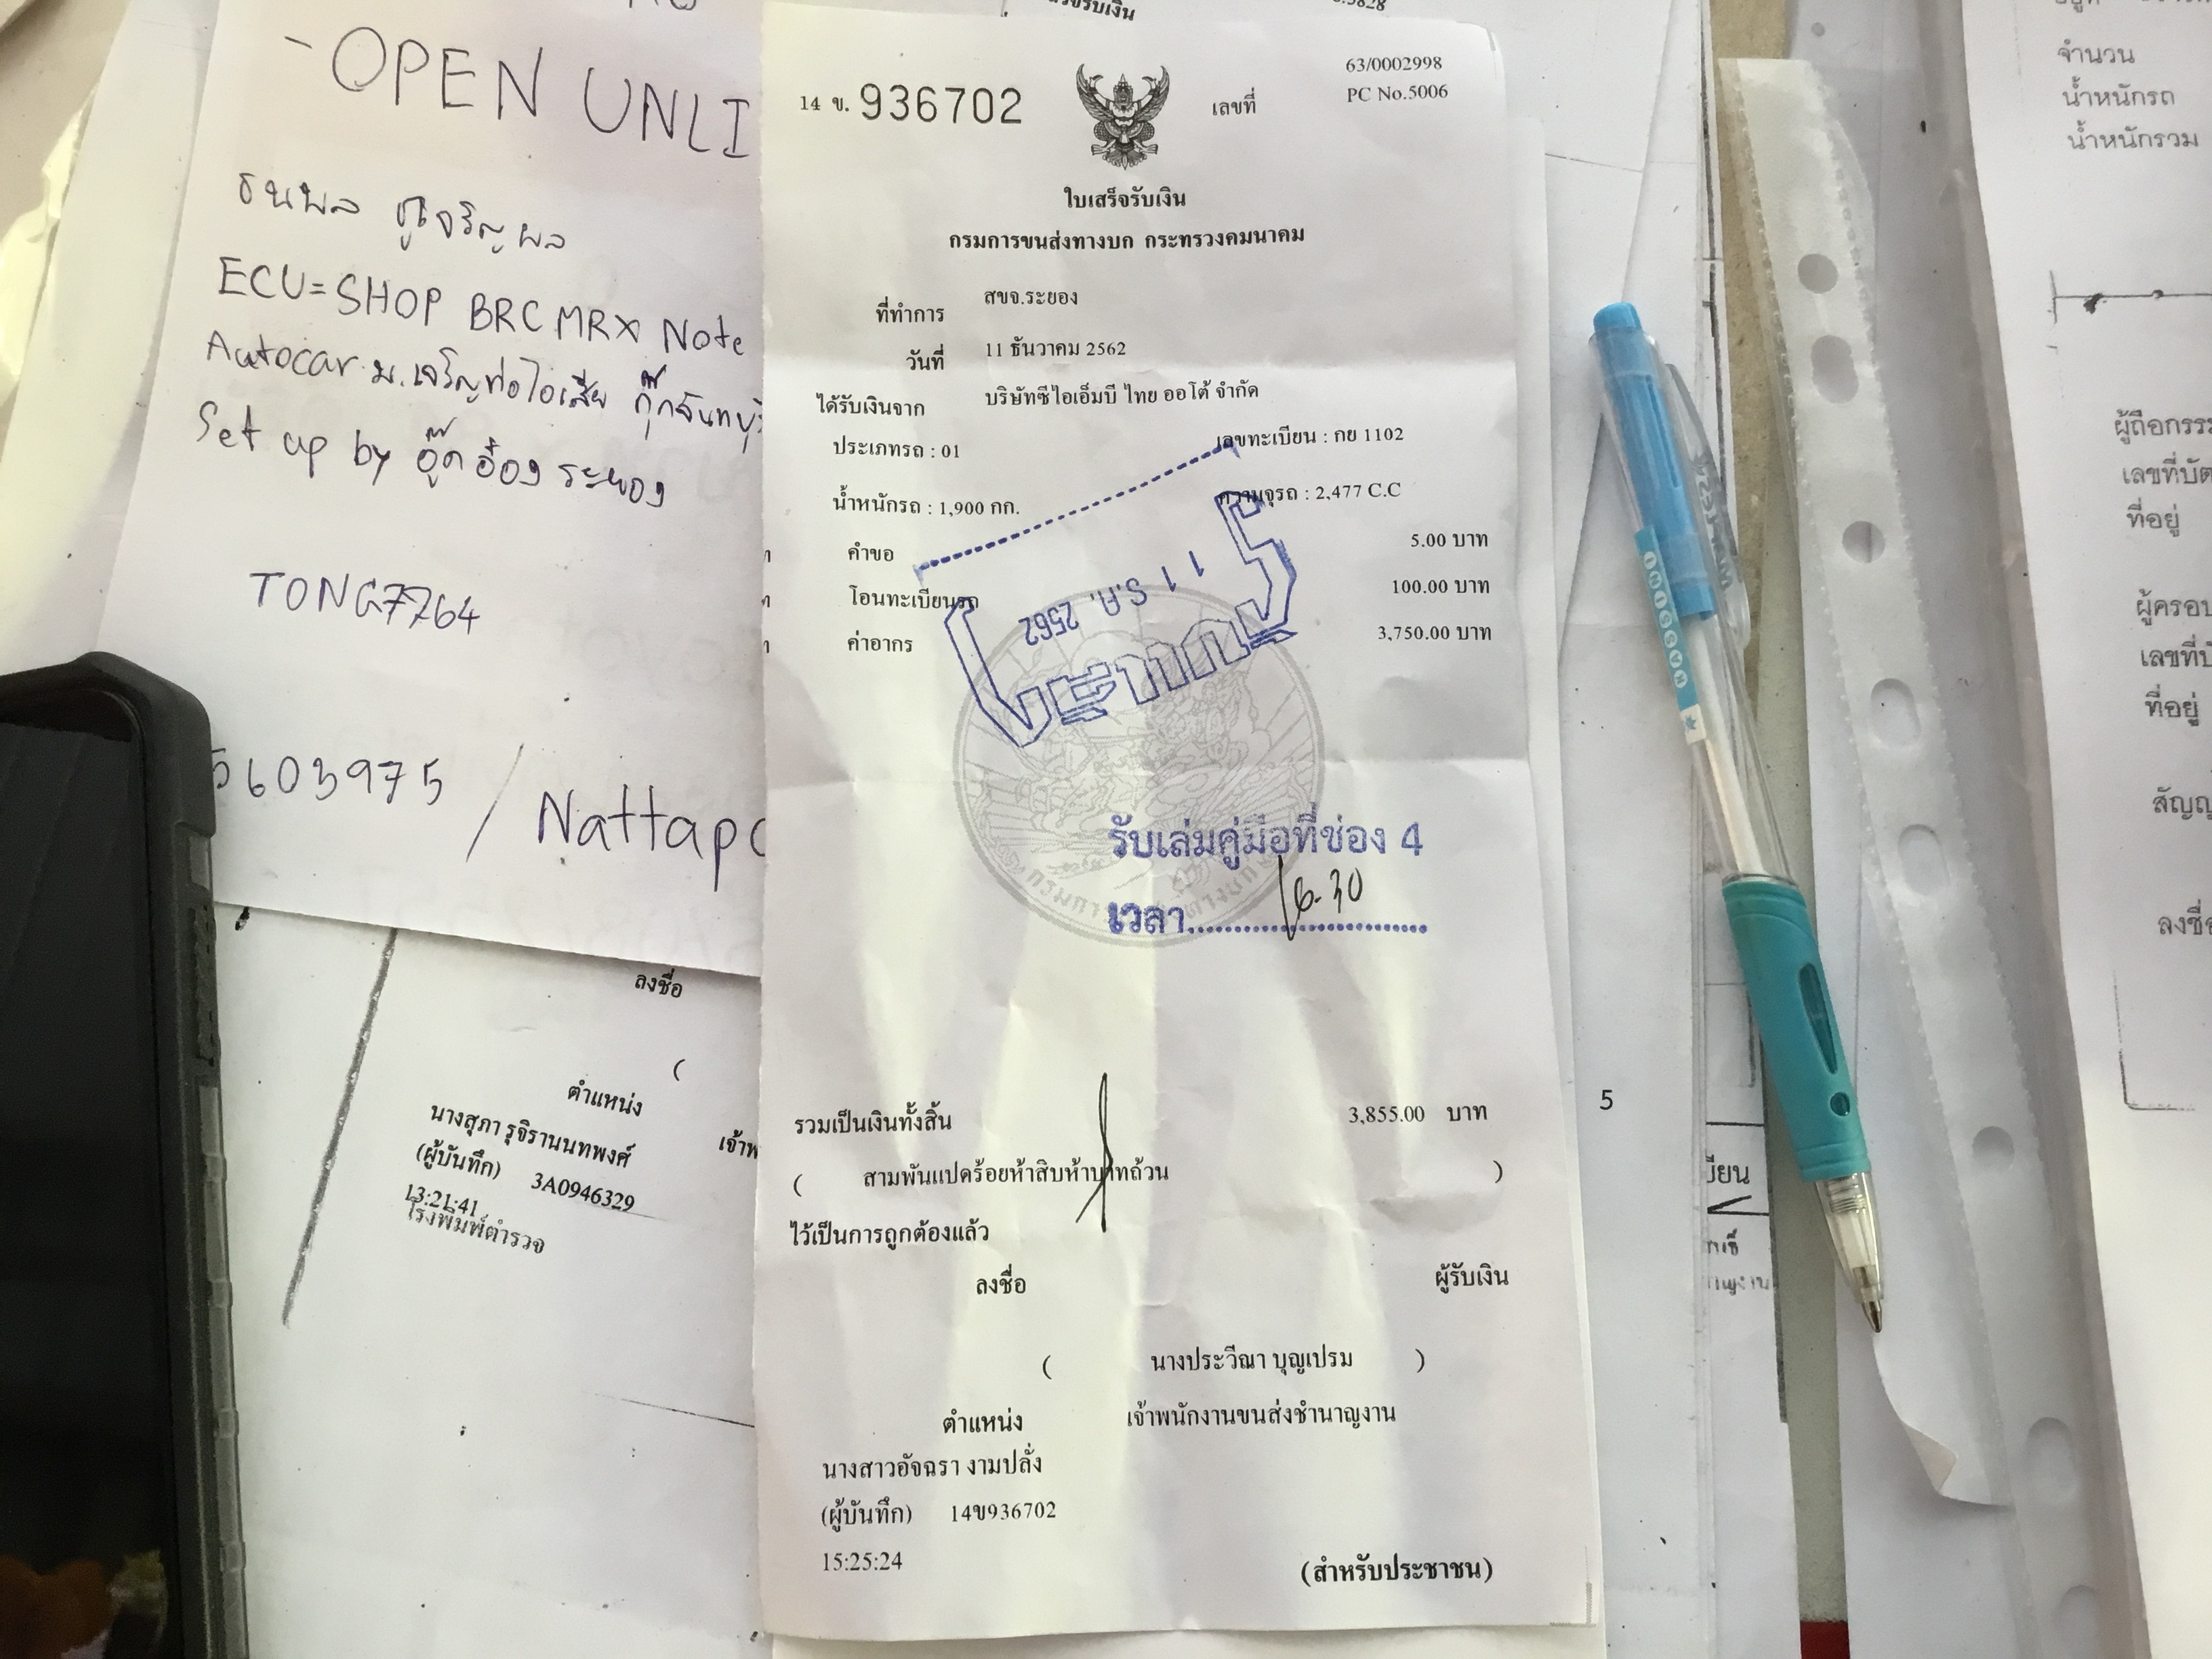 -OPEN UNLI
ธนพล ภูเจริญผล
ECU=SHOP BRC MRX Note
Autocar ม.เจริญท่อไอเสีย กุ๊กจันทบุรี
Set up by อู๊ด อื๋อง ระยอง
TONG7764
5603975 / Nattapo
ลงชื่อ
(
ตำแหน่ง
นางสุภา รุจิรานนทพงศ์
เจ้าพ
(ผู้บันทึก) 3A0946329
13:21:41
โรงพิมพ์ตำรวจ
14 ข. 936702
เลขที่
63/0002998
PC No.5006
ใบเสร็จรับเงิน
กรมการขนส่งทางบก กระทรวงคมนาคม
ที่ทำการ สขจ.ระยอง
วันที่ 11 ธันวาคม 2562
ได้รับเงินจาก บริษัทซีไอเอ็มบี ไทย ออโต้ จำกัด
ประเภทรถ : 01 เลขทะเบียน : กย 1102
น้ำหนักรถ : 1,900 กก. ความจุรถ : 2,477 C.C
คำขอ 5.00 บาท
โอนทะเบียนรถ 100.00 บาท
ค่าอากร 3,750.00 บาท
11 ธ.ค. 2562
รับเล่มคู่มือที่ช่อง 4
เวลา 16.30
รวมเป็นเงินทั้งสิ้น 3,855.00 บาท
( สามพันแปดร้อยห้าสิบห้าบาทถ้วน )
ไว้เป็นการถูกต้องแล้ว
ลงชื่อ ผู้รับเงิน
( นางประวีณา บุญเปรม )
ตำแหน่ง เจ้าพนักงานขนส่งชำนาญงาน
นางสาวอัจฉรา งามปลั่ง
(ผู้บันทึก) 14ข936702
15:25:24
(สำหรับประชาชน)
5
จำนวน
น้ำหนักรถ
น้ำหนักรวม
ผู้ถือกรรม
เลขที่บัต
ที่อยู่
ผู้ครอบ
เลขที่บั
ที่อยู่
สัญญ
ลงชื่อ